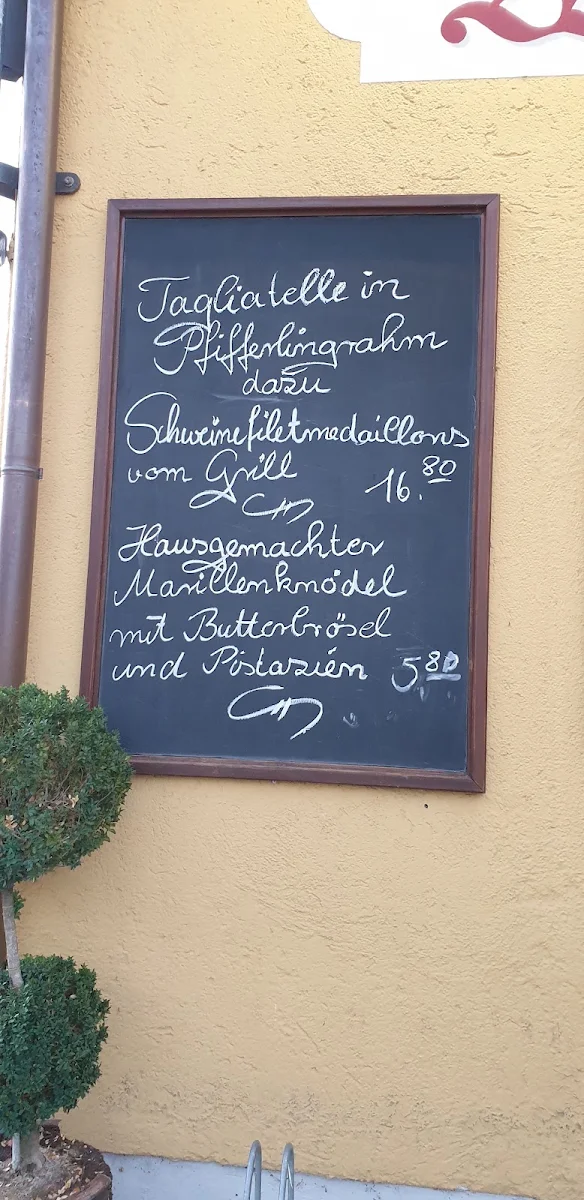 Tagliatelle in
Pfifferlingrahm
dazu
Schweinefiletmedaillons
vom Grill 16.80
Hausgemachter
Marillenknödel
mit Butterbrösel
und Pistazien 5,80